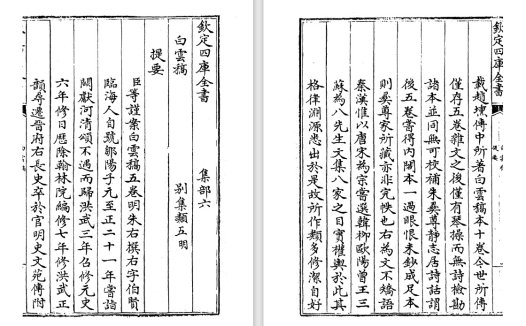 欽定四庫全書　集部六
白雲稿　別集類五明
提要
臣等謹案白雲稿五卷明朱右撰右字伯賢
臨海人自號鄒陽子元至正二十一年嘗詣
闕獻河清頌不遇而歸洪武三年召修元史
六年修日歷除翰林院編修七年修洪武正
韻尋遷晉府右長史卒於官明史文苑傳附
欽定四庫全書
載趙壎傳中所著白雲稿本十卷今世所傳
僅存五卷雜文之後僅有琴操而無詩檢勘
諸本並同無可校補朱彞尊静志居詩話謂
後五卷嘗得内閣本一過眼恨未鈔成足本
則彞尊家所藏亦非完帙也右為文不矯語
秦漢惟以唐宋為宗嘗選韓柳歐陽曾王三
蘇為八先生文集八家之目實權輿於此其
格律淵源悉出於是故所作類多修潔自好